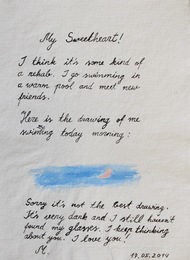 My Sweetheart!
I think it's some kind of
a rehab. I go swimming in
a warm pool and meet new
friends.
Here is the drawing of me
swiming today morning:
Sorry it's not the best drawing.
It's very dark and I still haven't
found my glasses. I keep thinking
about you. I love you!
M.
19.05.2014